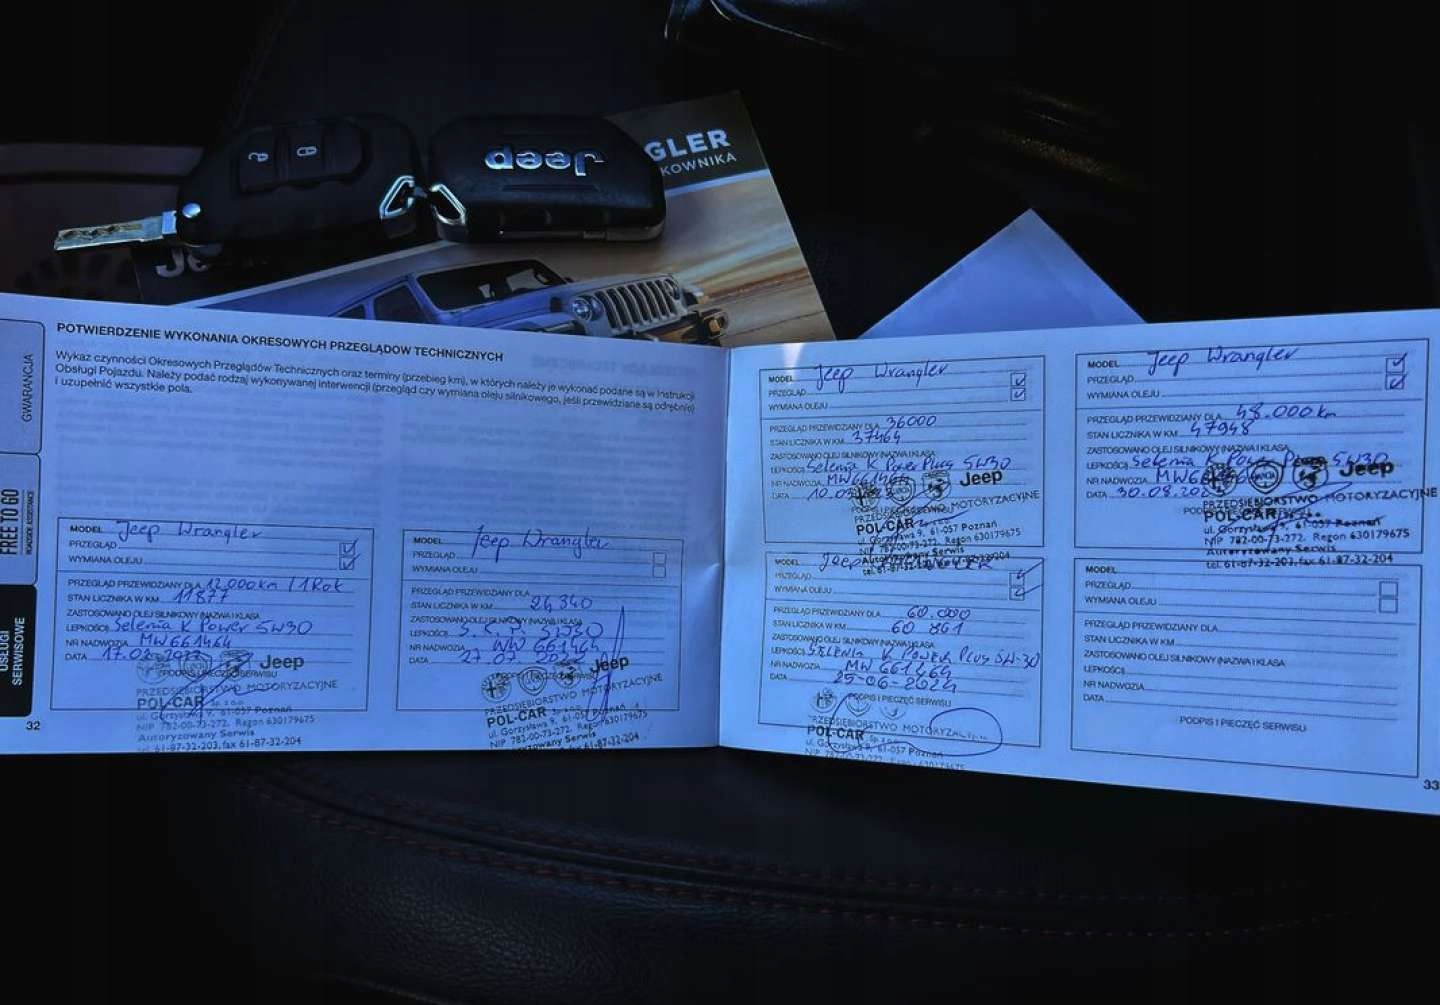 Jeep
GLER
KOWNIKA
GWARANCJA
FREE TO GO
ROADSIDE ASSISTANCE
USŁUGI SERWISOWE
POTWIERDZENIE WYKONANIA OKRESOWYCH PRZEGLĄDOW TECHNICZNYCH
Wykaz czynności Okresowych Przeglądów Technicznych oraz terminy (przebieg km), w których należy je wykonać podane są w Instrukcji
Obsługi Pojazdu. Należy podać rodzaj wykonywanej interwencji (przegląd czy wymiana oleju silnikowego, jeśli przewidziane są odrębnie)
i uzupełnić wszystkie pola.
MODEL Jeep Wrangler
PRZEGLĄD
WYMIANA OLEJU
PRZEGLĄD PRZEWIDZIANY DLA 12.000km / 1Rok
STAN LICZNIKA W KM 11877
ZASTOSOWANO OLEJ SILNIKOWY (NAZWA I KLASA
LEPKOŚCI) Selenia K Power 5W30
NR NADWOZIA MW661464
DATA 17.02
Jeep
PODPIS I PIECZĘĆ SERWISU
PRZEDSIĘBIORSTWO MOTORYZACYJNE
POL-CAR Sp. z o.o.
ul. Gorzysława 9, 61-057 Poznań
NIP 782-00-73-272, Regon 630179675
Autoryzowany Serwis
tel. 61-87-32-203, fax 61-87-32-204
32
MODEL Jeep Wrangler
PRZEGLĄD
WYMIANA OLEJU
PRZEGLĄD PRZEWIDZIANY DLA
STAN LICZNIKA W KM 24340
ZASTOSOWANO OLEJ SILNIKOWY (NAZWA I KLASA
LEPKOŚCI) S. K. P. 5W30
NR NADWOZIA MW 661464
DATA 27.07
Jeep
PRZEDSIĘBIORSTWO MOTORYZACYJNE
POL-CAR Sp. z o.o.
ul. Gorzysława 9, 61-057 Poznań
NIP 782-00-73-272, Regon 630179675
Autoryzowany Serwis
tel. 61-87-32-203, fax 61-87-32-204
MODEL Jeep Wrangler
PRZEGLĄD
WYMIANA OLEJU
PRZEGLĄD PRZEWIDZIANY DLA 36000
STAN LICZNIKA W KM 37464
ZASTOSOWANO OLEJ SILNIKOWY (NAZWA I KLASA
LEPKOŚCI) Selenia K Power Plus 5W30
NR NADWOZIA MW661464
DATA 10.03
Jeep
PRZEDSIĘBIORSTWO MOTORYZACYJNE
PODPIS I PIECZĘĆ SERWISU
POL-CAR Sp. z o.o.
ul. Gorzysława 9, 61-057 Poznań
NIP 782-00-73-272, Regon 630179675
Autoryzowany Serwis
tel. 61-87-32-203, fax 61-87-32-204
MODEL Jeep Wrangler
PRZEGLĄD
WYMIANA OLEJU
PRZEGLĄD PRZEWIDZIANY DLA 48.000km
STAN LICZNIKA W KM 47948
ZASTOSOWANO OLEJ SILNIKOWY (NAZWA I KLASA
LEPKOŚCI) Selenia K Power Plus 5W30
NR NADWOZIA
DATA 30.08.202
Jeep
PRZEDSIĘBIORSTWO MOTORYZACYJNE
POL-CAR Sp. z o.o.
ul. Gorzysława 9, 61-057 Poznań
NIP 782-00-73-272, Regon 630179675
Autoryzowany Serwis
tel. 61-87-32-203, fax 61-87-32-204
MODEL Jeep
PRZEGLĄD
WYMIANA OLEJU
PRZEGLĄD PRZEWIDZIANY DLA 60.000
STAN LICZNIKA W KM 60 861
ZASTOSOWANO OLEJ SILNIKOWY (NAZWA I KLASA
LEPKOŚCI) SELENIA K POWER PLUS 5W-30
NR NADWOZIA MW 661464
DATA 25-06-2024
PODPIS I PIECZĘĆ SERWISU
PRZEDSIĘBIORSTWO
POL-CAR Sp. z o.o.
ul. Gorzysława 9, 61-057 Poznań
NIP 782-00-73-272, Regon 630179675
MODEL
PRZEGLĄD
WYMIANA OLEJU
PRZEGLĄD PRZEWIDZIANY DLA
STAN LICZNIKA W KM
ZASTOSOWANO OLEJ SILNIKOWY (NAZWA I KLASA
LEPKOŚCI)
NR NADWOZIA
DATA
PODPIS I PIECZĘĆ SERWISU
33